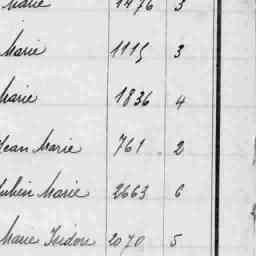 Marie 1476 3
Marie 1115 3
Marie 1836 4
Jean Marie 761 2
Julien Marie 2663 6
Marie Isidore 2070 5